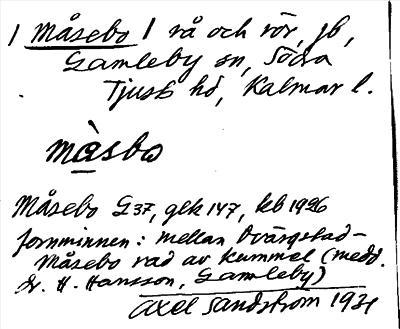 1 Måsebo 1 rå och rör, jb,
Gamleby sn, Södra
Tjust hd, Kalmar l.
måsbo
Måsebo G37, glk 147, kb 1926
fornminnen: mellan Dvärgstad-
Måsebo rad av kummel (medd.
H. Hansson, Gamleby)
Axel Sandström 1931